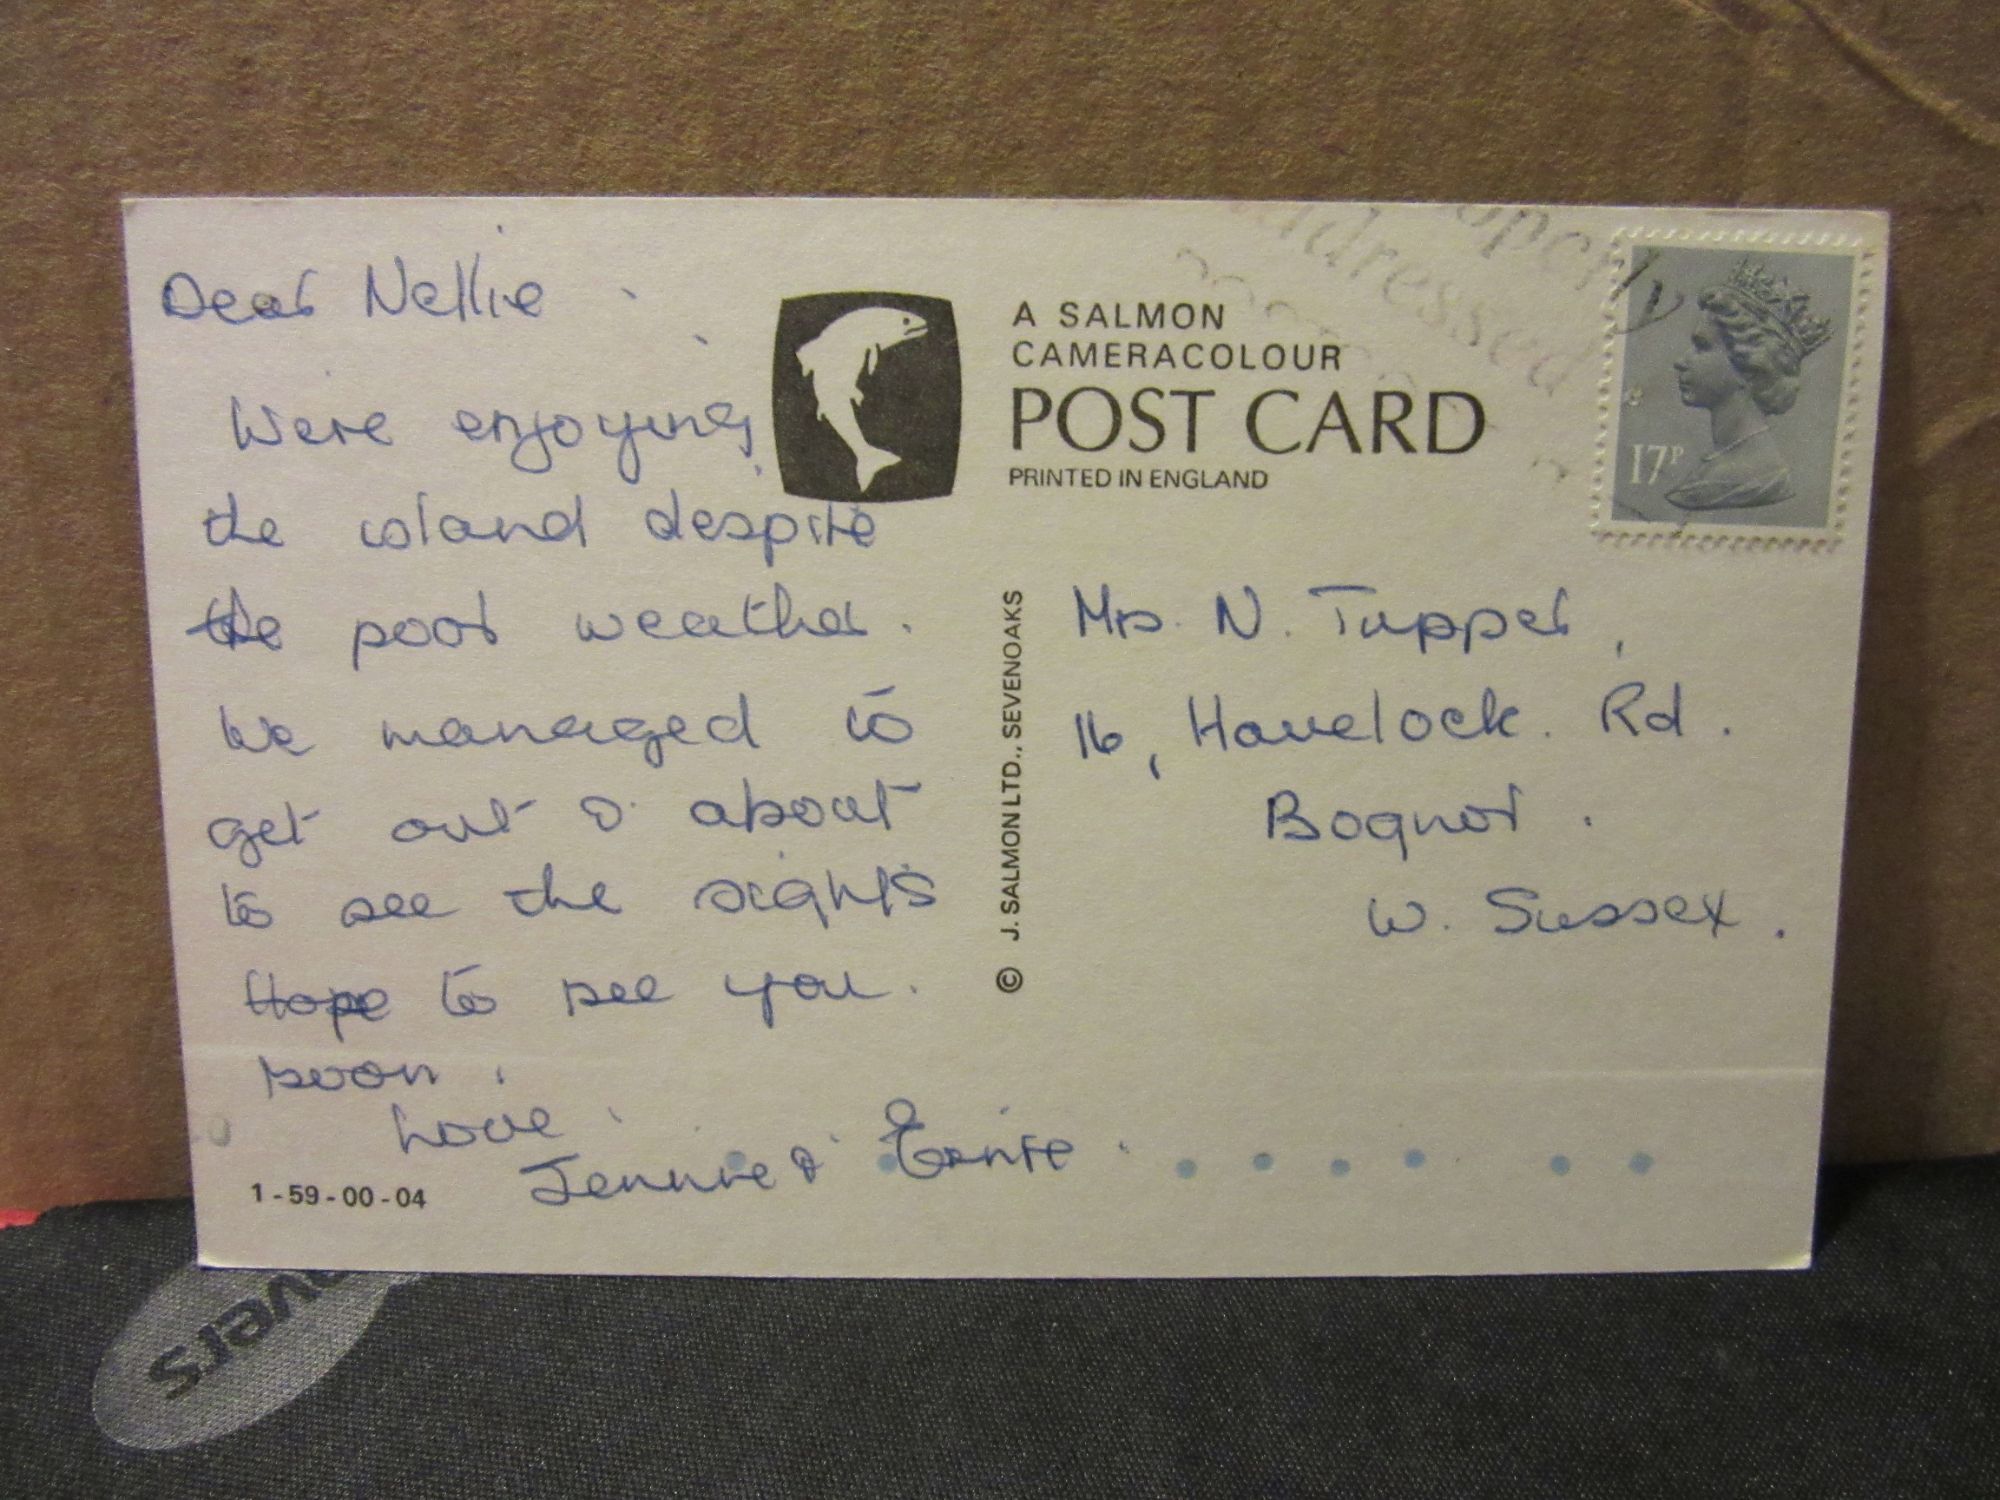 Dear Nellie
Were enjoying
the island despite
the poor weather.
We managed to
get out & about
to see the sights
Hope to see you.
soon.
Love
Jennie & Ernie.
1-59-00-04
A SALMON
CAMERACOLOUR
POST CARD
PRINTED IN ENGLAND
© J. SALMON LTD., SEVENOAKS
operly
addressed
17P
Mrs. N. Tupper,
16, Havelock. Rd.
Bognor.
W. Sussex.
vers